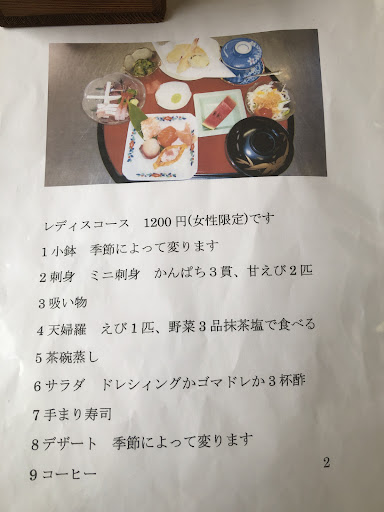 レディスコース　1200円(女性限定)です
1小鉢　季節によって変ります
2刺身　ミニ刺身　かんぱち3貫、甘えび2匹
3吸い物
4天婦羅　えび1匹、野菜3品抹茶塩で食べる
5茶碗蒸し
6サラダ　ドレシィングかゴマドレか3杯酢
7手まり寿司
8デザート　季節によって変ります
9コーヒー
2